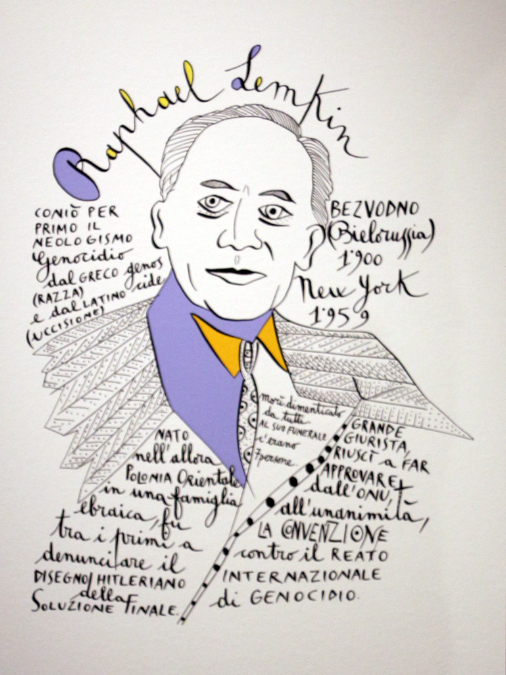 Raphael Lemkin
CONIÒ PER
PRIMO IL
NEOLOGISMO
Genocidio
dal GRECO genos
(RAZZA)
e dal LATINO cide
(UCCISIONE)
BEZVODNO
(Bielorussia)
1900
New York
1959
morì dimenticato
da tutti
AL SUO FUNERALE
c'erano
7 persone
NATO
nell'allora
POLONIA Orientale
in una famiglia
ebraica, fu
tra i primi a
denunciare il
DISEGNO HITLERIANO
della
SOLUZIONE FINALE.
GRANDE
GIURISTA,
RIUSCÌ A FAR
APPROVARE
dall'ONU,
all'unanimità,
LA CONVENZIONE
contro il REATO
INTERNAZIONALE
di GENOCIDIO.